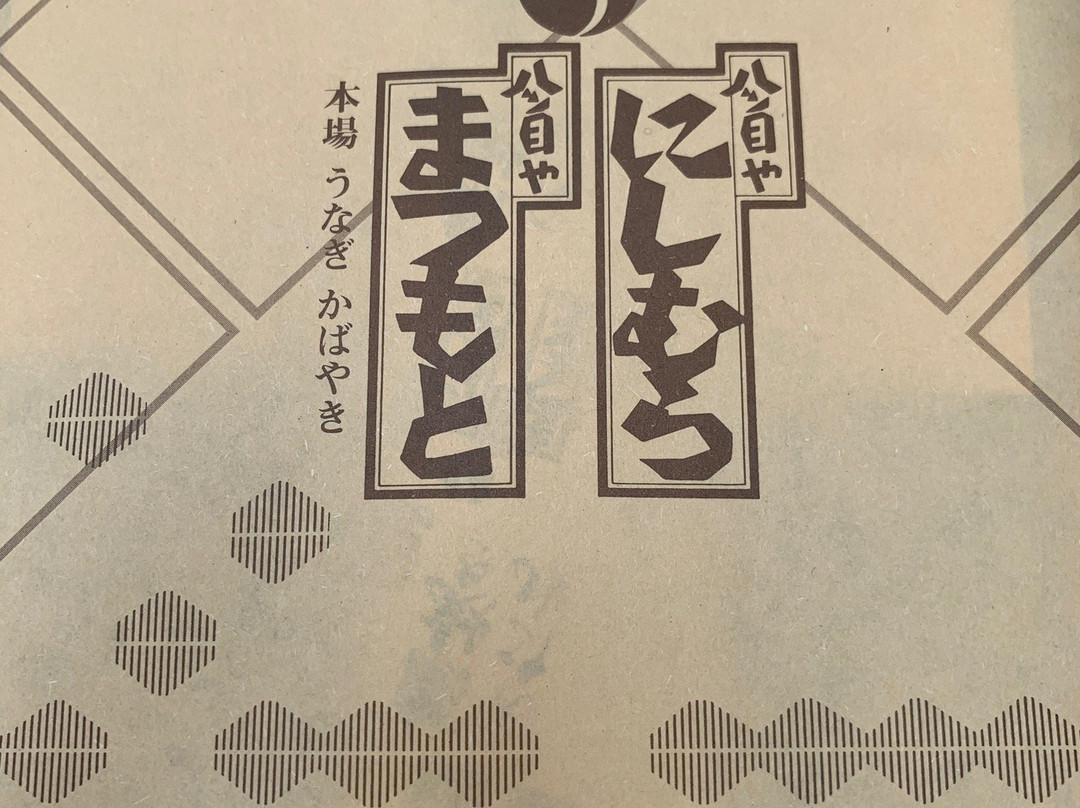 八ッ目や
にしむら
八ッ目や
まつもと
本場 うなぎ かばやき